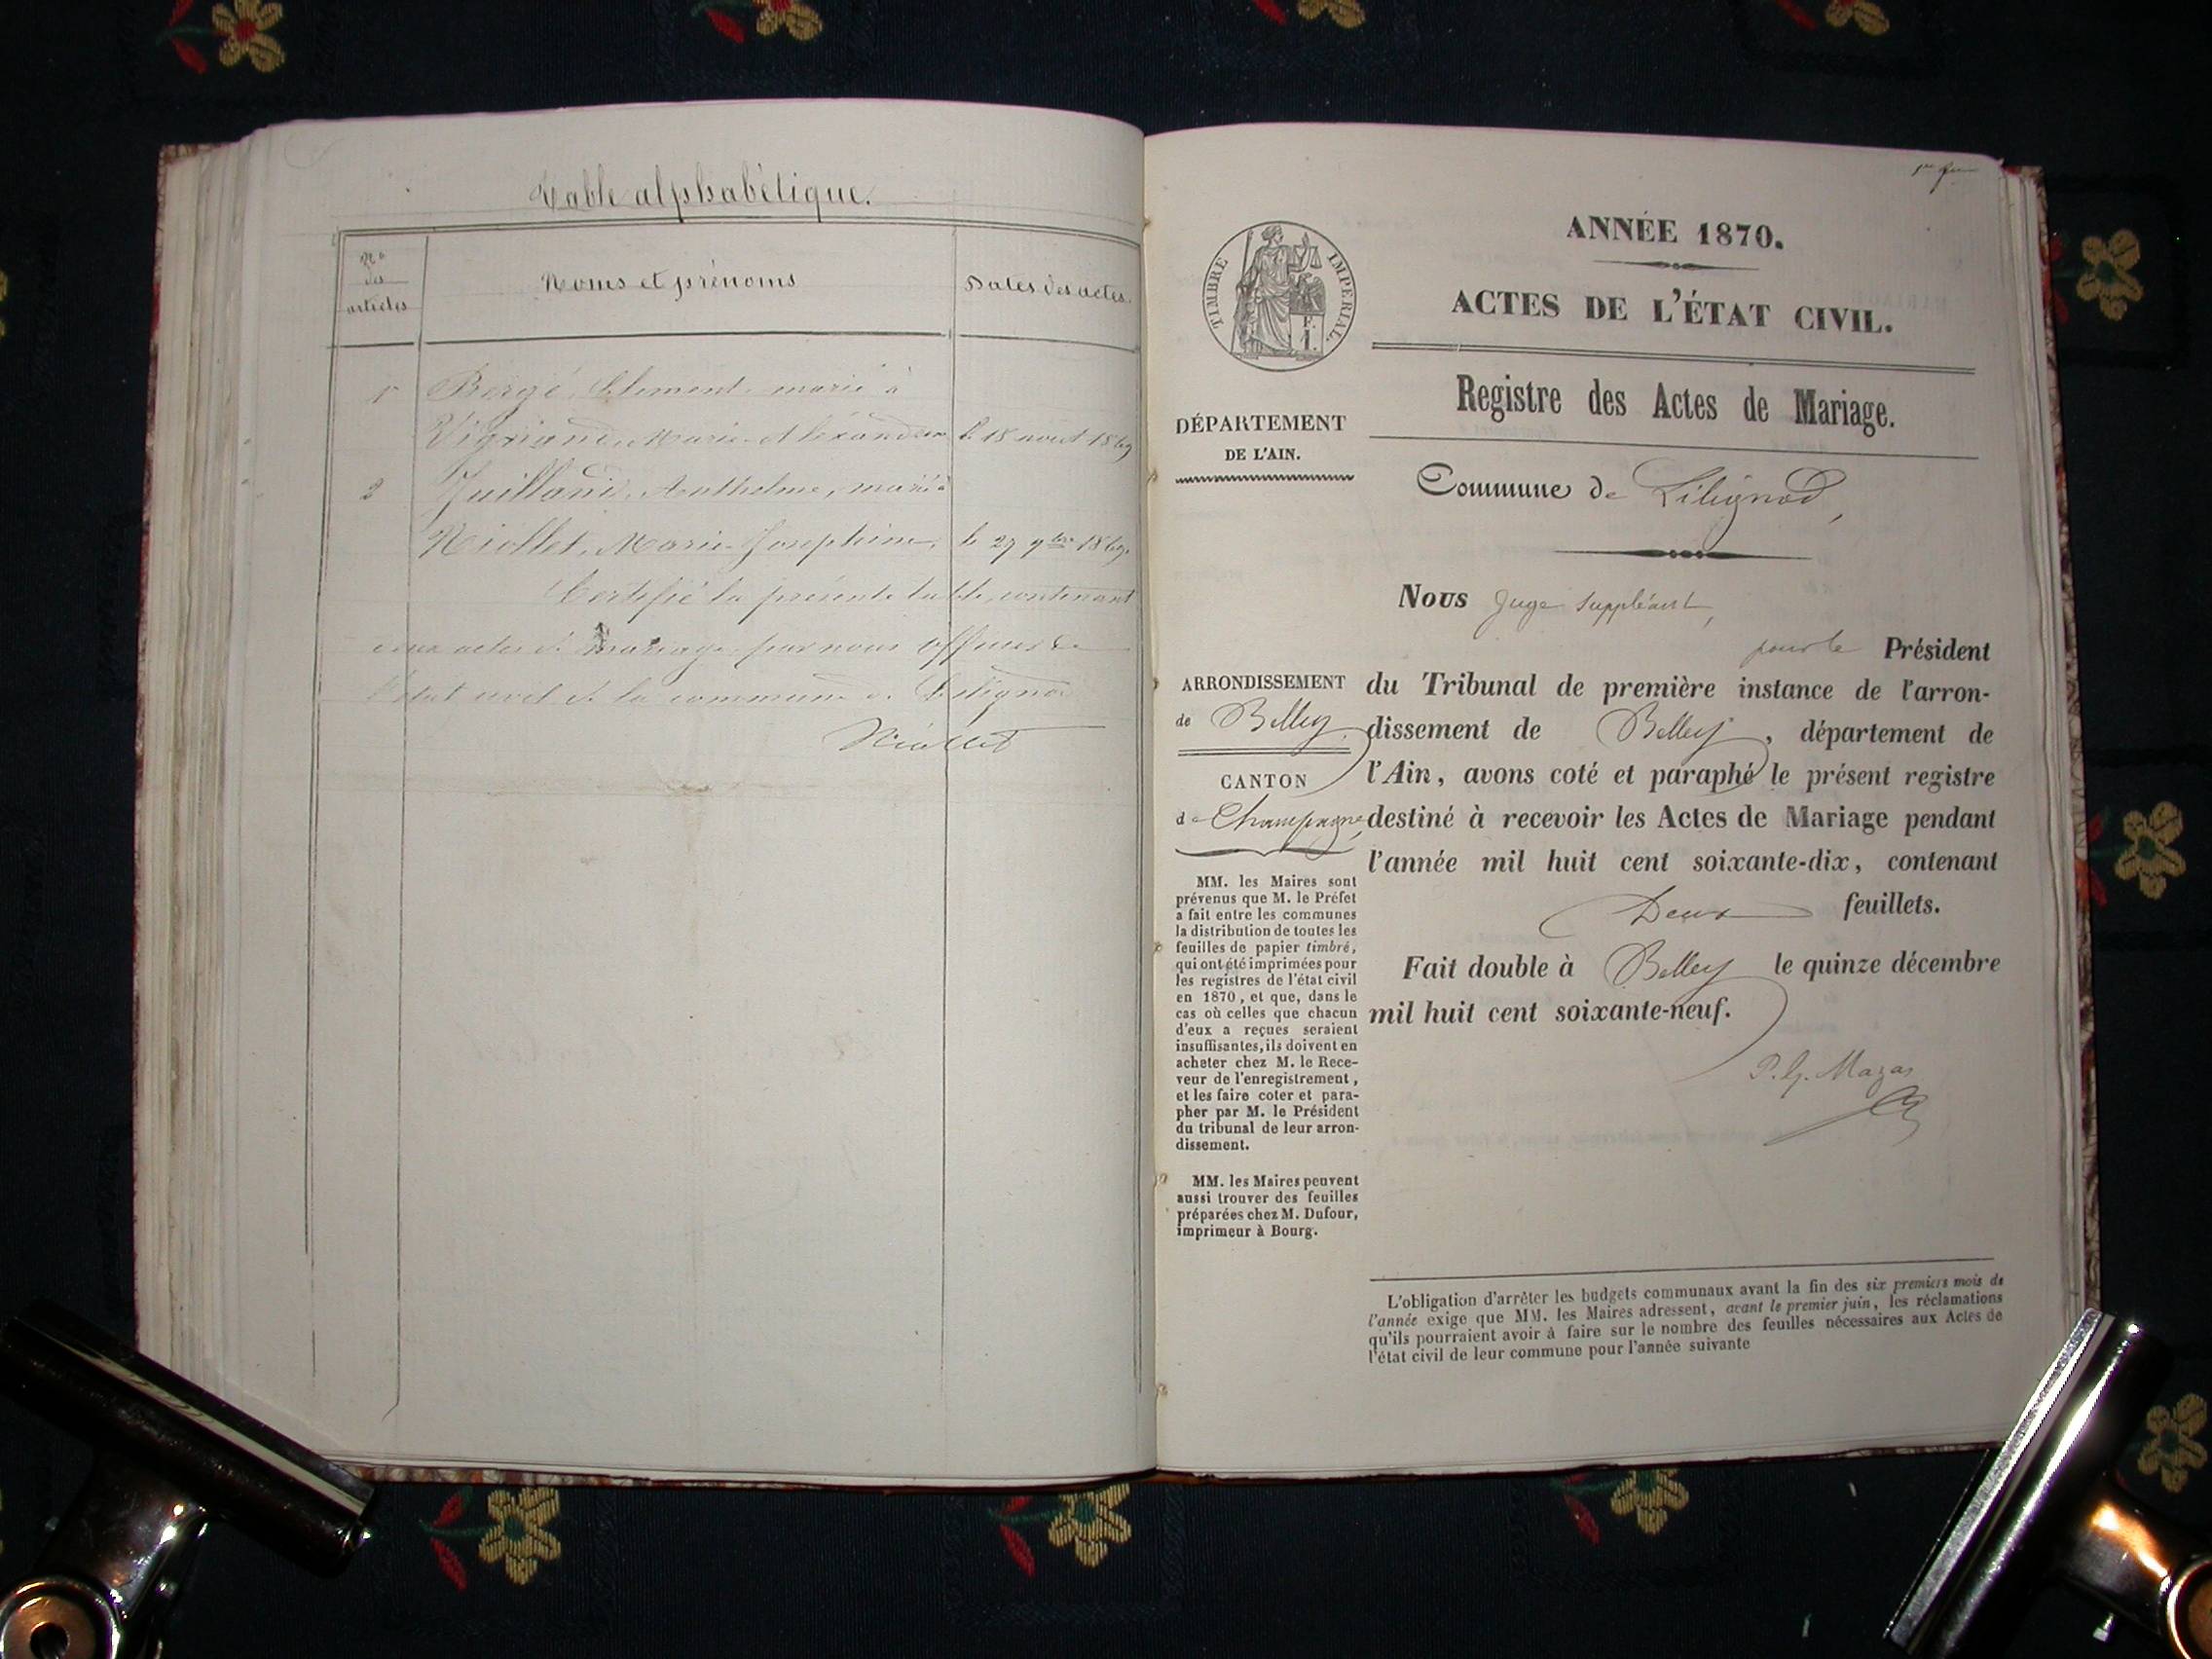 Table alphabétique.
Nos
des
articles
Noms et prénoms
Dates des actes.
1
Bergé, Clément, marié à
Marie Alexandrine
le 18 aout 1869
2
Juilland, Anthelme, marié à
Niollet, Marie Josephine,
le 29 9bre 1869.
Certifié la présente table, contenant
deux actes de mariage, par nous officier de
l'état civil de la commune de Lilignod
Niollet
TIMBRE IMPERIAL.
F.
1.
ANNÉE 1870.
ACTES DE L'ÉTAT CIVIL.
Registre des Actes de Mariage.
Commune de Lilignod,
DÉPARTEMENT
DE L'AIN.
ARRONDISSEMENT
de Belley
CANTON
de Champagne
MM. les Maires sont
prévenus que M. le Préfet
a fait entre les communes
la distribution de toutes les
feuilles de papier timbré,
qui ont été imprimées pour
les registres de l'état civil
en 1870, et que, dans le
cas où celles que chacun
d'eux a reçues seraient
insuffisantes, ils doivent en
acheter chez M. le Rece-
veur de l'enregistrement,
et les faire coter et para-
pher par M. le Président
du tribunal de leur arron-
dissement.
MM. les Maires peuvent
aussi trouver des feuilles
préparées chez M. Dufour,
imprimeur à Bourg.
Nous Juge suppléant,
pour le Président
du Tribunal de première instance de l'arron-
dissement de Belley, département de
l'Ain, avons coté et paraphé le présent registre
destiné à recevoir les Actes de Mariage pendant
l'année mil huit cent soixante-dix, contenant
Deux feuillets.
Fait double à Belley le quinze décembre
mil huit cent soixante-neuf.
Mazas
L'obligation d'arrêter les budgets communaux avant la fin des six premiers mois de
l'année exige que MM. les Maires adressent, avant le premier juin, les réclamations
qu'ils pourraient avoir à faire sur le nombre des feuilles nécessaires aux Actes de
l'état civil de leur commune pour l'année suivante